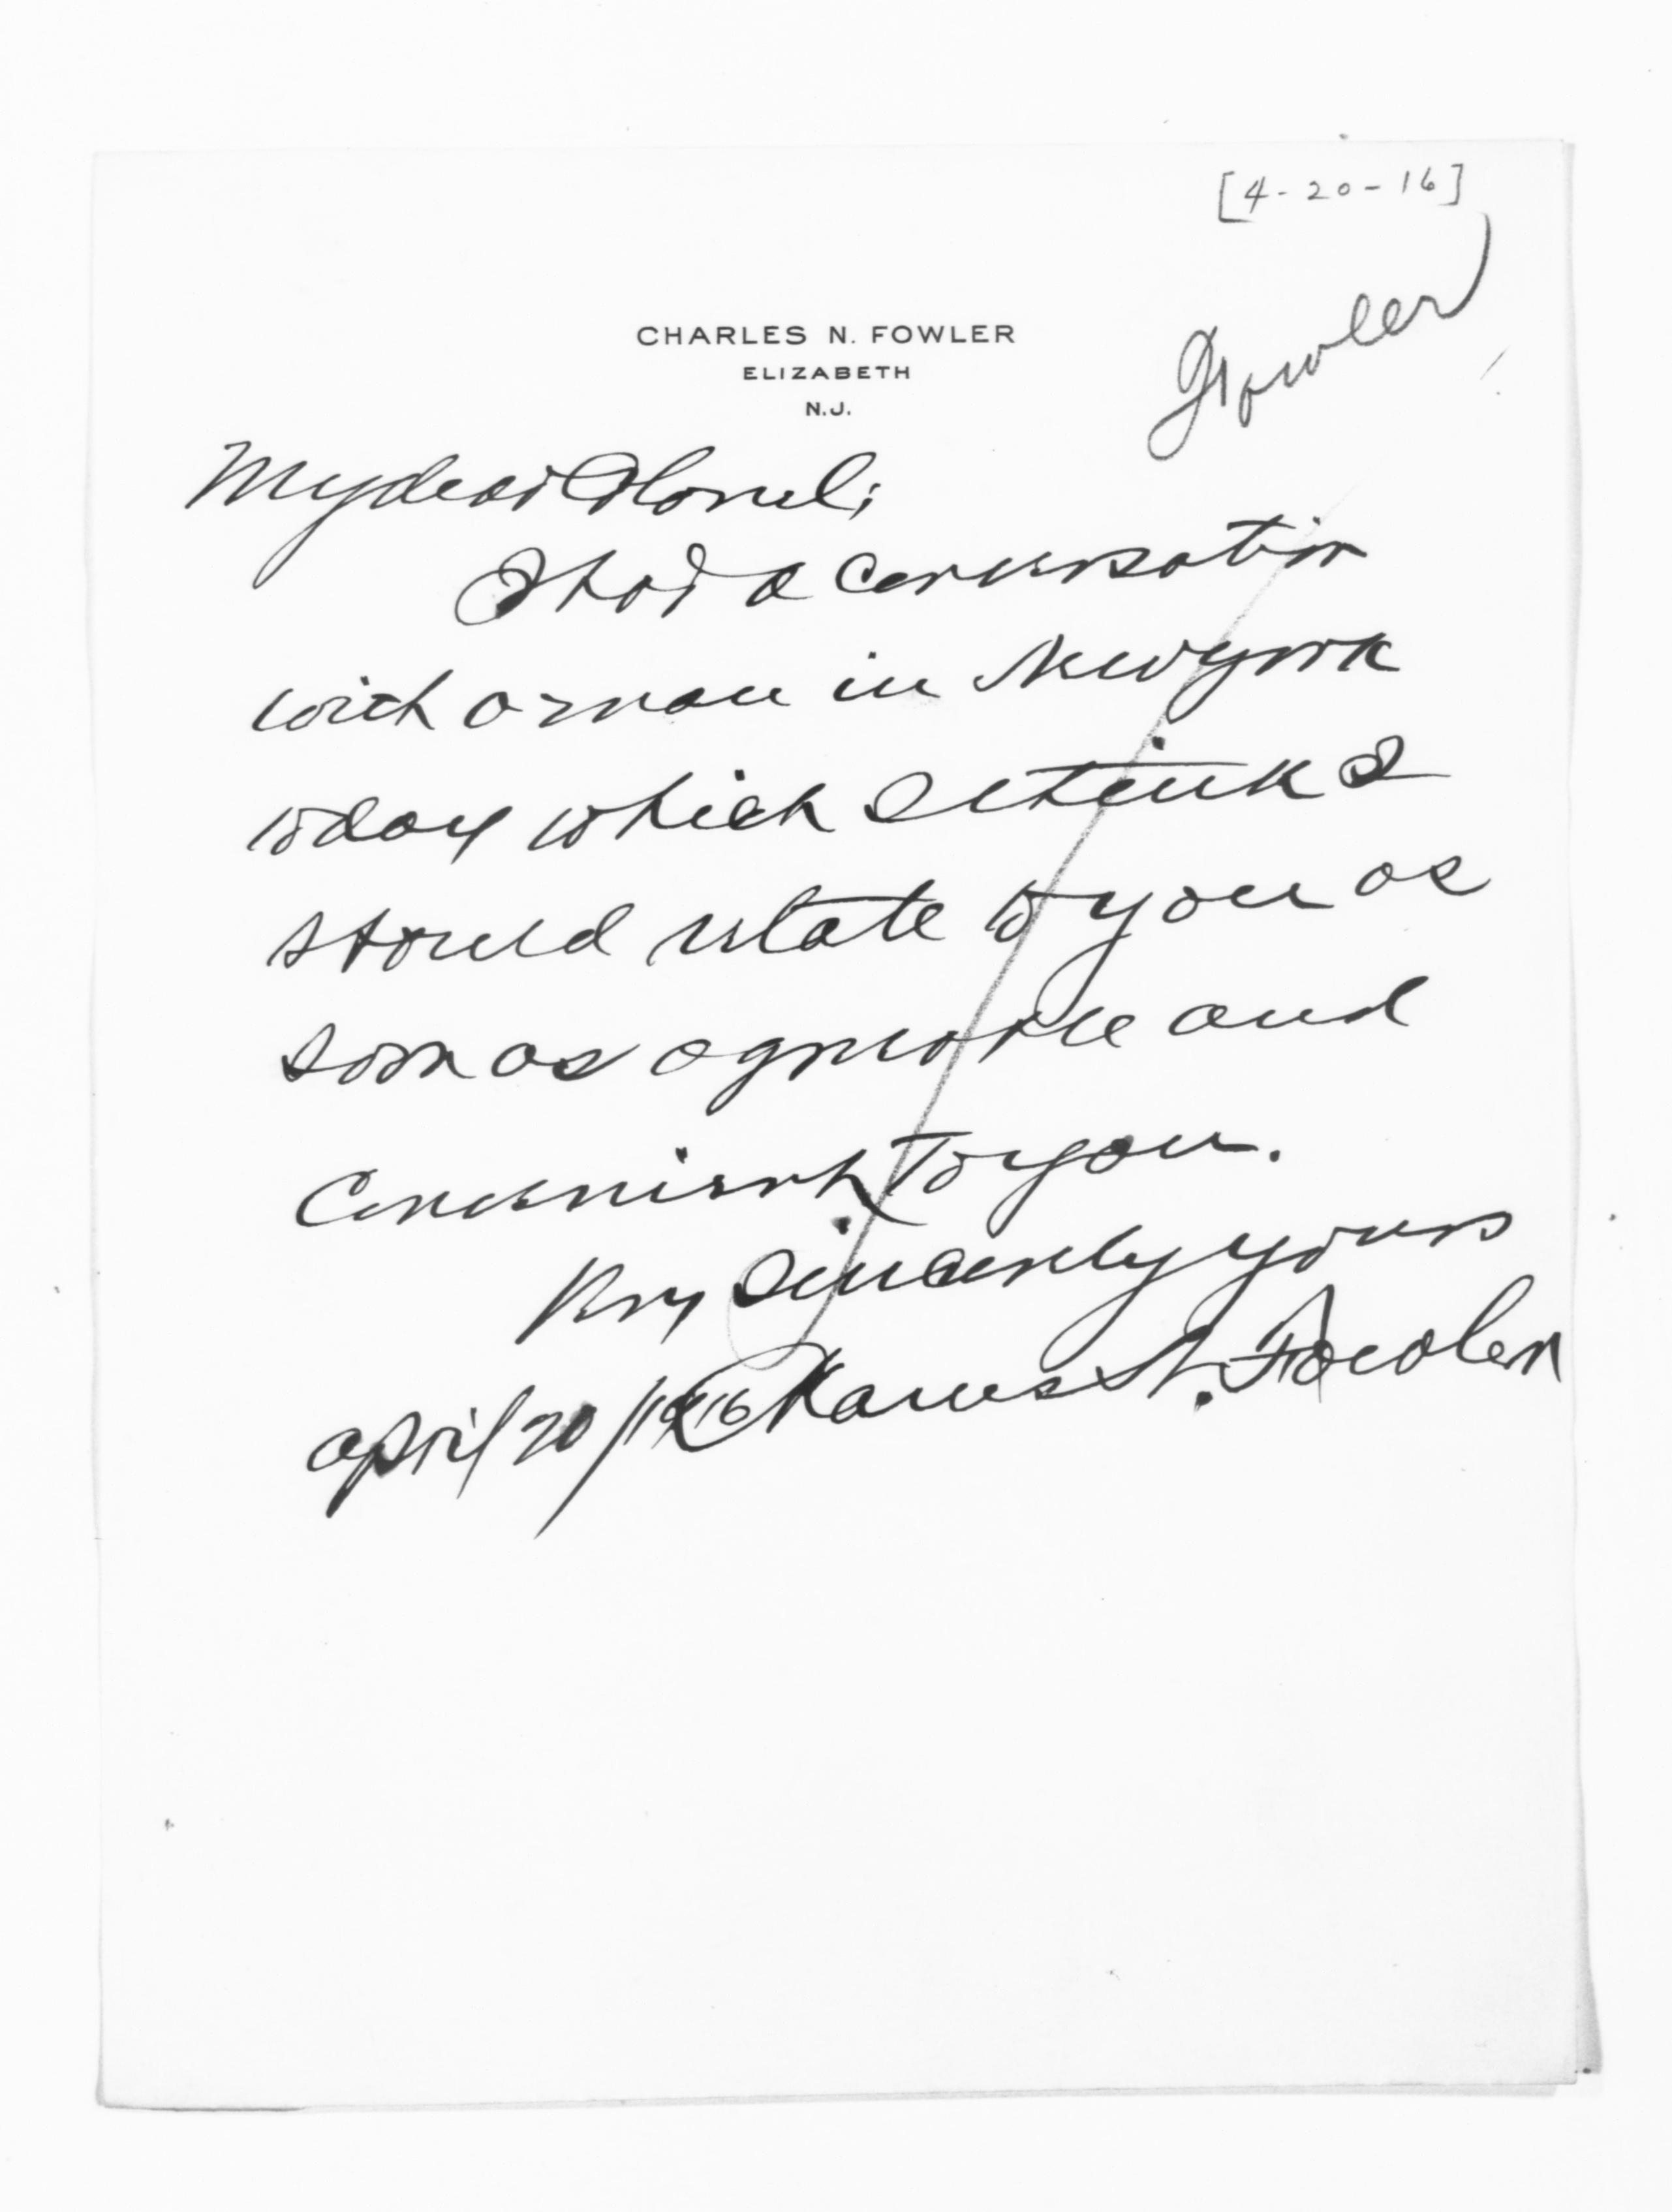 [4-20-16]
Fowler
CHARLES N. FOWLER
ELIZABETH
N.J.
My dear Colonel;
I had a conversation
with a man in New York
today which I think I
should relate to you as
soon as agreeable and
convenient to you.
Very Sincerely yours
Charles N. Fowler
April 20/1916